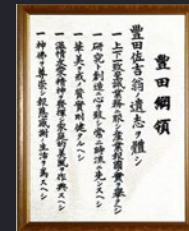 豐田綱領
豐田佐吉翁ノ遺志ヲ體シ
一上下一致至誠業務ニ服シ産業報國ノ實ヲ擧クヘシ
一研究ト創造ニ心ヲ致シ常ニ時流ニ先ンスヘシ
一華美ヲ戒メ質實剛健タルヘシ
一温情友愛ノ精神ヲ發揮シ家庭的美風ヲ作興スヘシ
一神佛ヲ尊崇シ報恩感謝ノ生活ヲ爲スヘシ